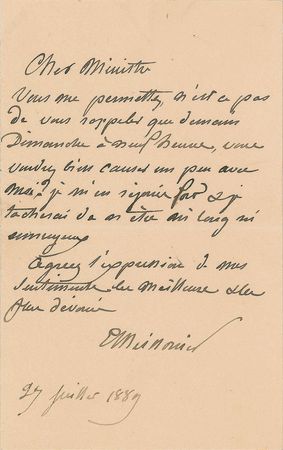 Cher Ministre
Vous me permettez, n'est ce pas
de vous rappeler que demain
Dimanche à neuf heures, vous
voudrez bien causer un peu avec
moi je m'en réjouis fort & je
tacherai de n'être ni long ni
ennuyeux
Agréez l'expression de mes
sentiments les meilleurs & les
plus dévoués
EMeissonier
27 juillet 1889